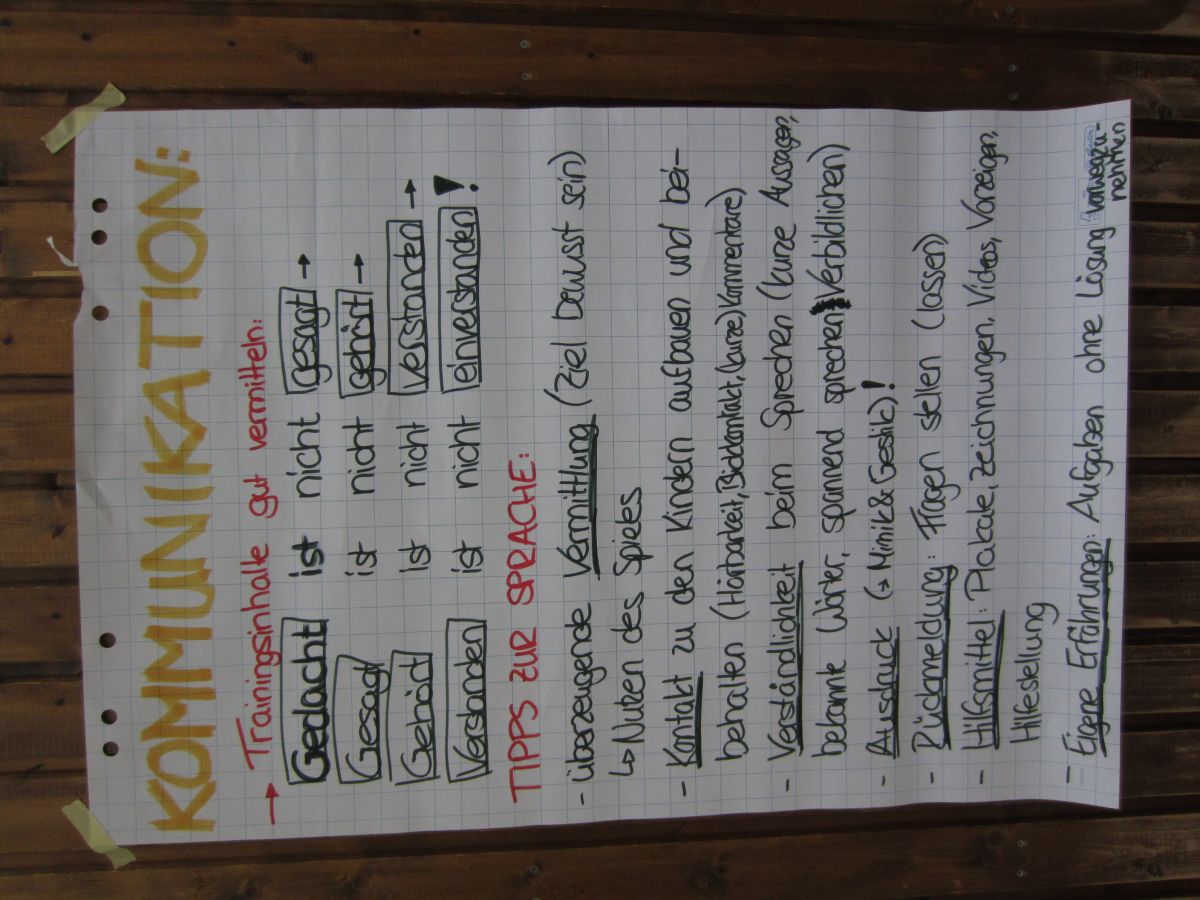 KOMMUNIKATION:
→ Trainingsinhalte gut vermitteln:
Gedacht ist nicht gesagt →
Gesagt ist nicht gehört →
Gehört ist nicht verstanden →
Verstanden ist nicht einverstanden!
TIPPS ZUR SPRACHE:
- überzeugende Vermittlung (Ziel bewusst sein)
↳ Nutzen des Spieles
- Kontakt zu den Kindern aufbauen und bei-
behalten (Hörbarkeit, Blickkontakt, (kurze) Kommentare)
- Verständlichkeit beim Sprechen (kurze Aussagen,
bekannte Wörter, spannend sprechen) Verbildlichen)
- Ausdruck (→ Mimik & Gestik)!
- Rückmeldung: Fragen stellen (lassen)
- Hilfsmittel: Plakate, Zeichnungen, Videos, Vorzeigen,
Hilfestellung
- Eigene Erfahrungen: Aufgaben ohne Lösung vorwegzu-
nehmen